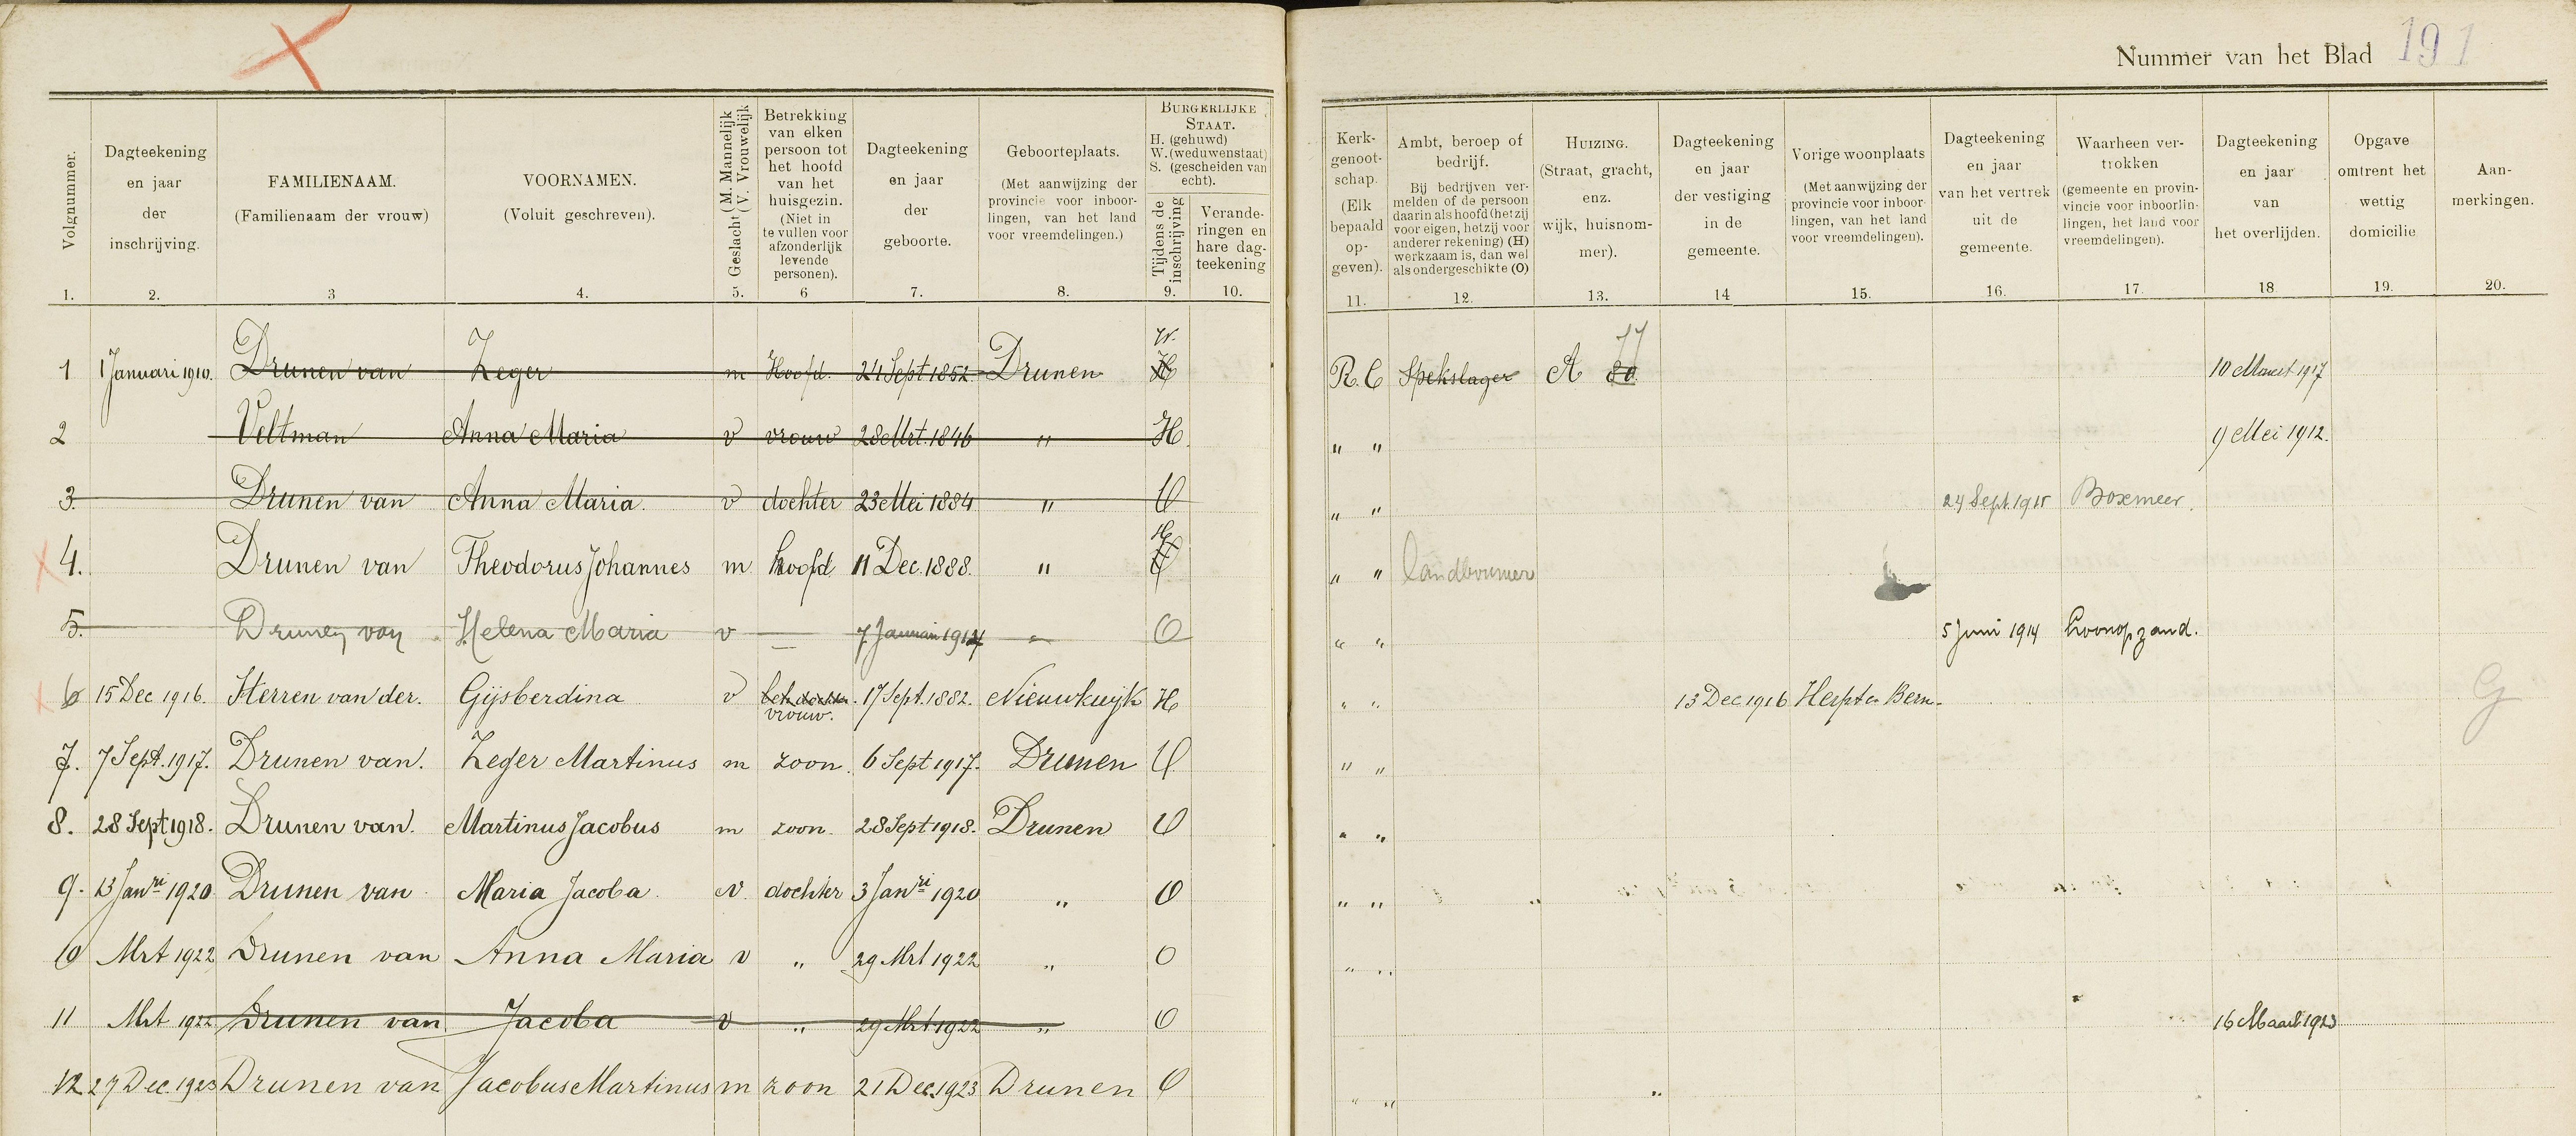 Nummer van het Blad 191
Volgnummer.
1.
Dagteekening
en jaar
der
inschrijving.
2.
FAMILIENAAM.
(Familienaam der vrouw)
3
VOORNAMEN.
(Voluit geschreven).
4.
Geslacht (M. Mannelijk
(V. Vrouwelijk
5.
Betrekking
van elken
persoon tot
het hoofd
van het
huisgezin.
(Niet in
te vullen voor
afzonderlijk
levende
personen).
6
Dagteekening
en jaar
der
geboorte.
7.
Geboorteplaats.
(Met aanwijzing der
provincie voor inboor-
lingen, van het land
voor vreemdelingen.)
8.
BURGERLIJKE
STAAT.
H. (gehuwd)
W. (weduwenstaat)
S. (gescheiden van
echt).
Tijdens de
inschrijving
9.
Verande-
ringen en
hare dag-
teekening
10.
Kerk-
genoot-
schap.
(Elk
bepaald
op-
geven).
11.
Ambt, beroep of
bedrijf.
Bij bedrijven ver-
melden of de persoon
daarin als hoofd (hetzij
voor eigen, hetzij voor
anderer rekening) (H)
werkzaam is, dan wel
als ondergeschikte (O)
12.
HUIZING.
(Straat, gracht,
enz.
wijk, huisnom-
mer).
13.
Dagteekening
en jaar
der vestiging
in de
gemeente.
14
Vorige woonplaats
(Met aanwijzing der
provincie voor inboor-
lingen, van het land
voor vreemdelingen).
15.
Dagteekening
en jaar
van het vertrek
uit de
gemeente.
16.
Waarheen ver-
trokken
(gemeente en provin-
vincie voor inboorlin-
lingen, het land voor
vreemdelingen).
17.
Dagteekening
en jaar
van
het overlijden.
18
Opgave
omtrent het
wettig
domicilie
19.
Aan-
merkingen.
20.
1 1 Januari 1910. Drunen van Zeger m Hoofd. 24 Sept 1852. Drunen H W. R. C Spekslager A 80 77 10 Maart 1917
2 Veltman Anna Maria v vrouw 28 Mrt. 1846 " H " " 9 Mei 1912.
3. Drunen van Anna Maria. v dochter 23 Mei 1884 " O " " 24 Sept. 1915 Boxmeer.
4. Drunen van Theodorus Johannes m hoofd 11 Dec. 1888. " O H " " landbouwer
5. Drunen van Helena Maria v — 7 Januari 1914 " O " " 5 Juni 1914 Loonopzand.
6 15 Dec 1916. Herren van der. Gijsberdina v vrouw. 17 Sept. 1882. Nieuwkuijk H " " 13 Dec 1916 Herpt en Bern. G
7. 7 Sept. 1917. Drunen van. Zeger Martinus m zoon. 6 Sept 1917. Drunen O " "
8. 28 Sept 1918. Drunen van. Martinus Jacobus m zoon. 28 Sept 1918. Drunen O " "
9. 13 Janri 1920 Drunen van Maria Jacoba. v. dochter 3 Janri 1920 " O " " "
10 Mrt 1922 Drunen van Anna Maria v " 29 Mrt 1922 " O " "
11 Mrt 1922 Drunen van Jacoba v " 29 Mrt 1922 " O 16 Maart 1923
12 27 Dec. 1923 Drunen van Jacobus Martinus m zoon 21 Dec. 1923 Drunen O " " "